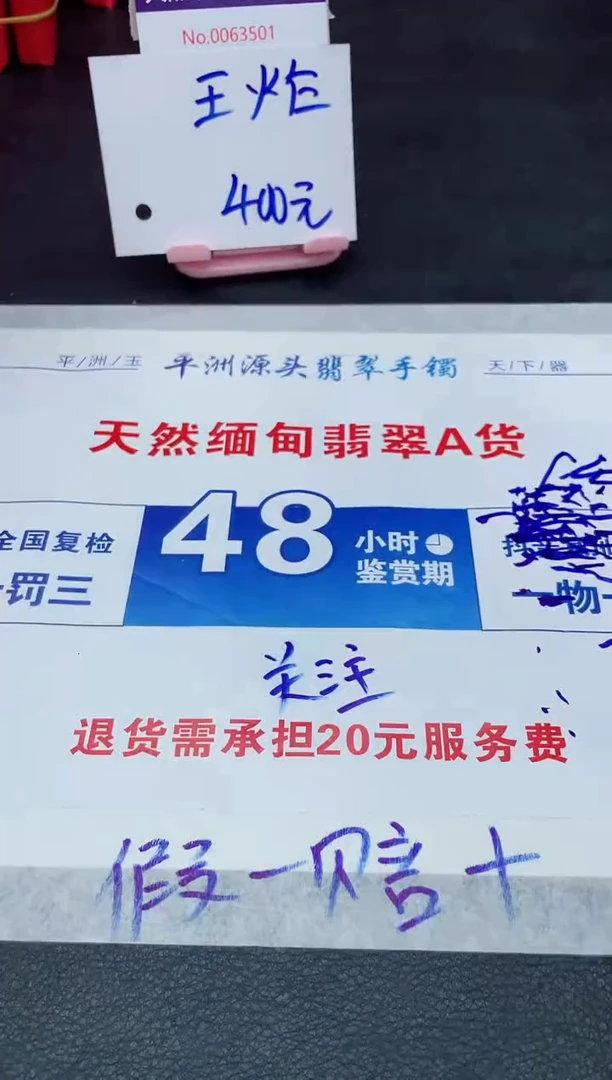 No.0063501
王炸
400元
平/洲/玉 平洲源头翡翠手镯 天/下/器
天然缅甸翡翠A货
全国复检
罚三
48小时
鉴赏期
一物一
关注
退货需承担20元服务费
假一赔十